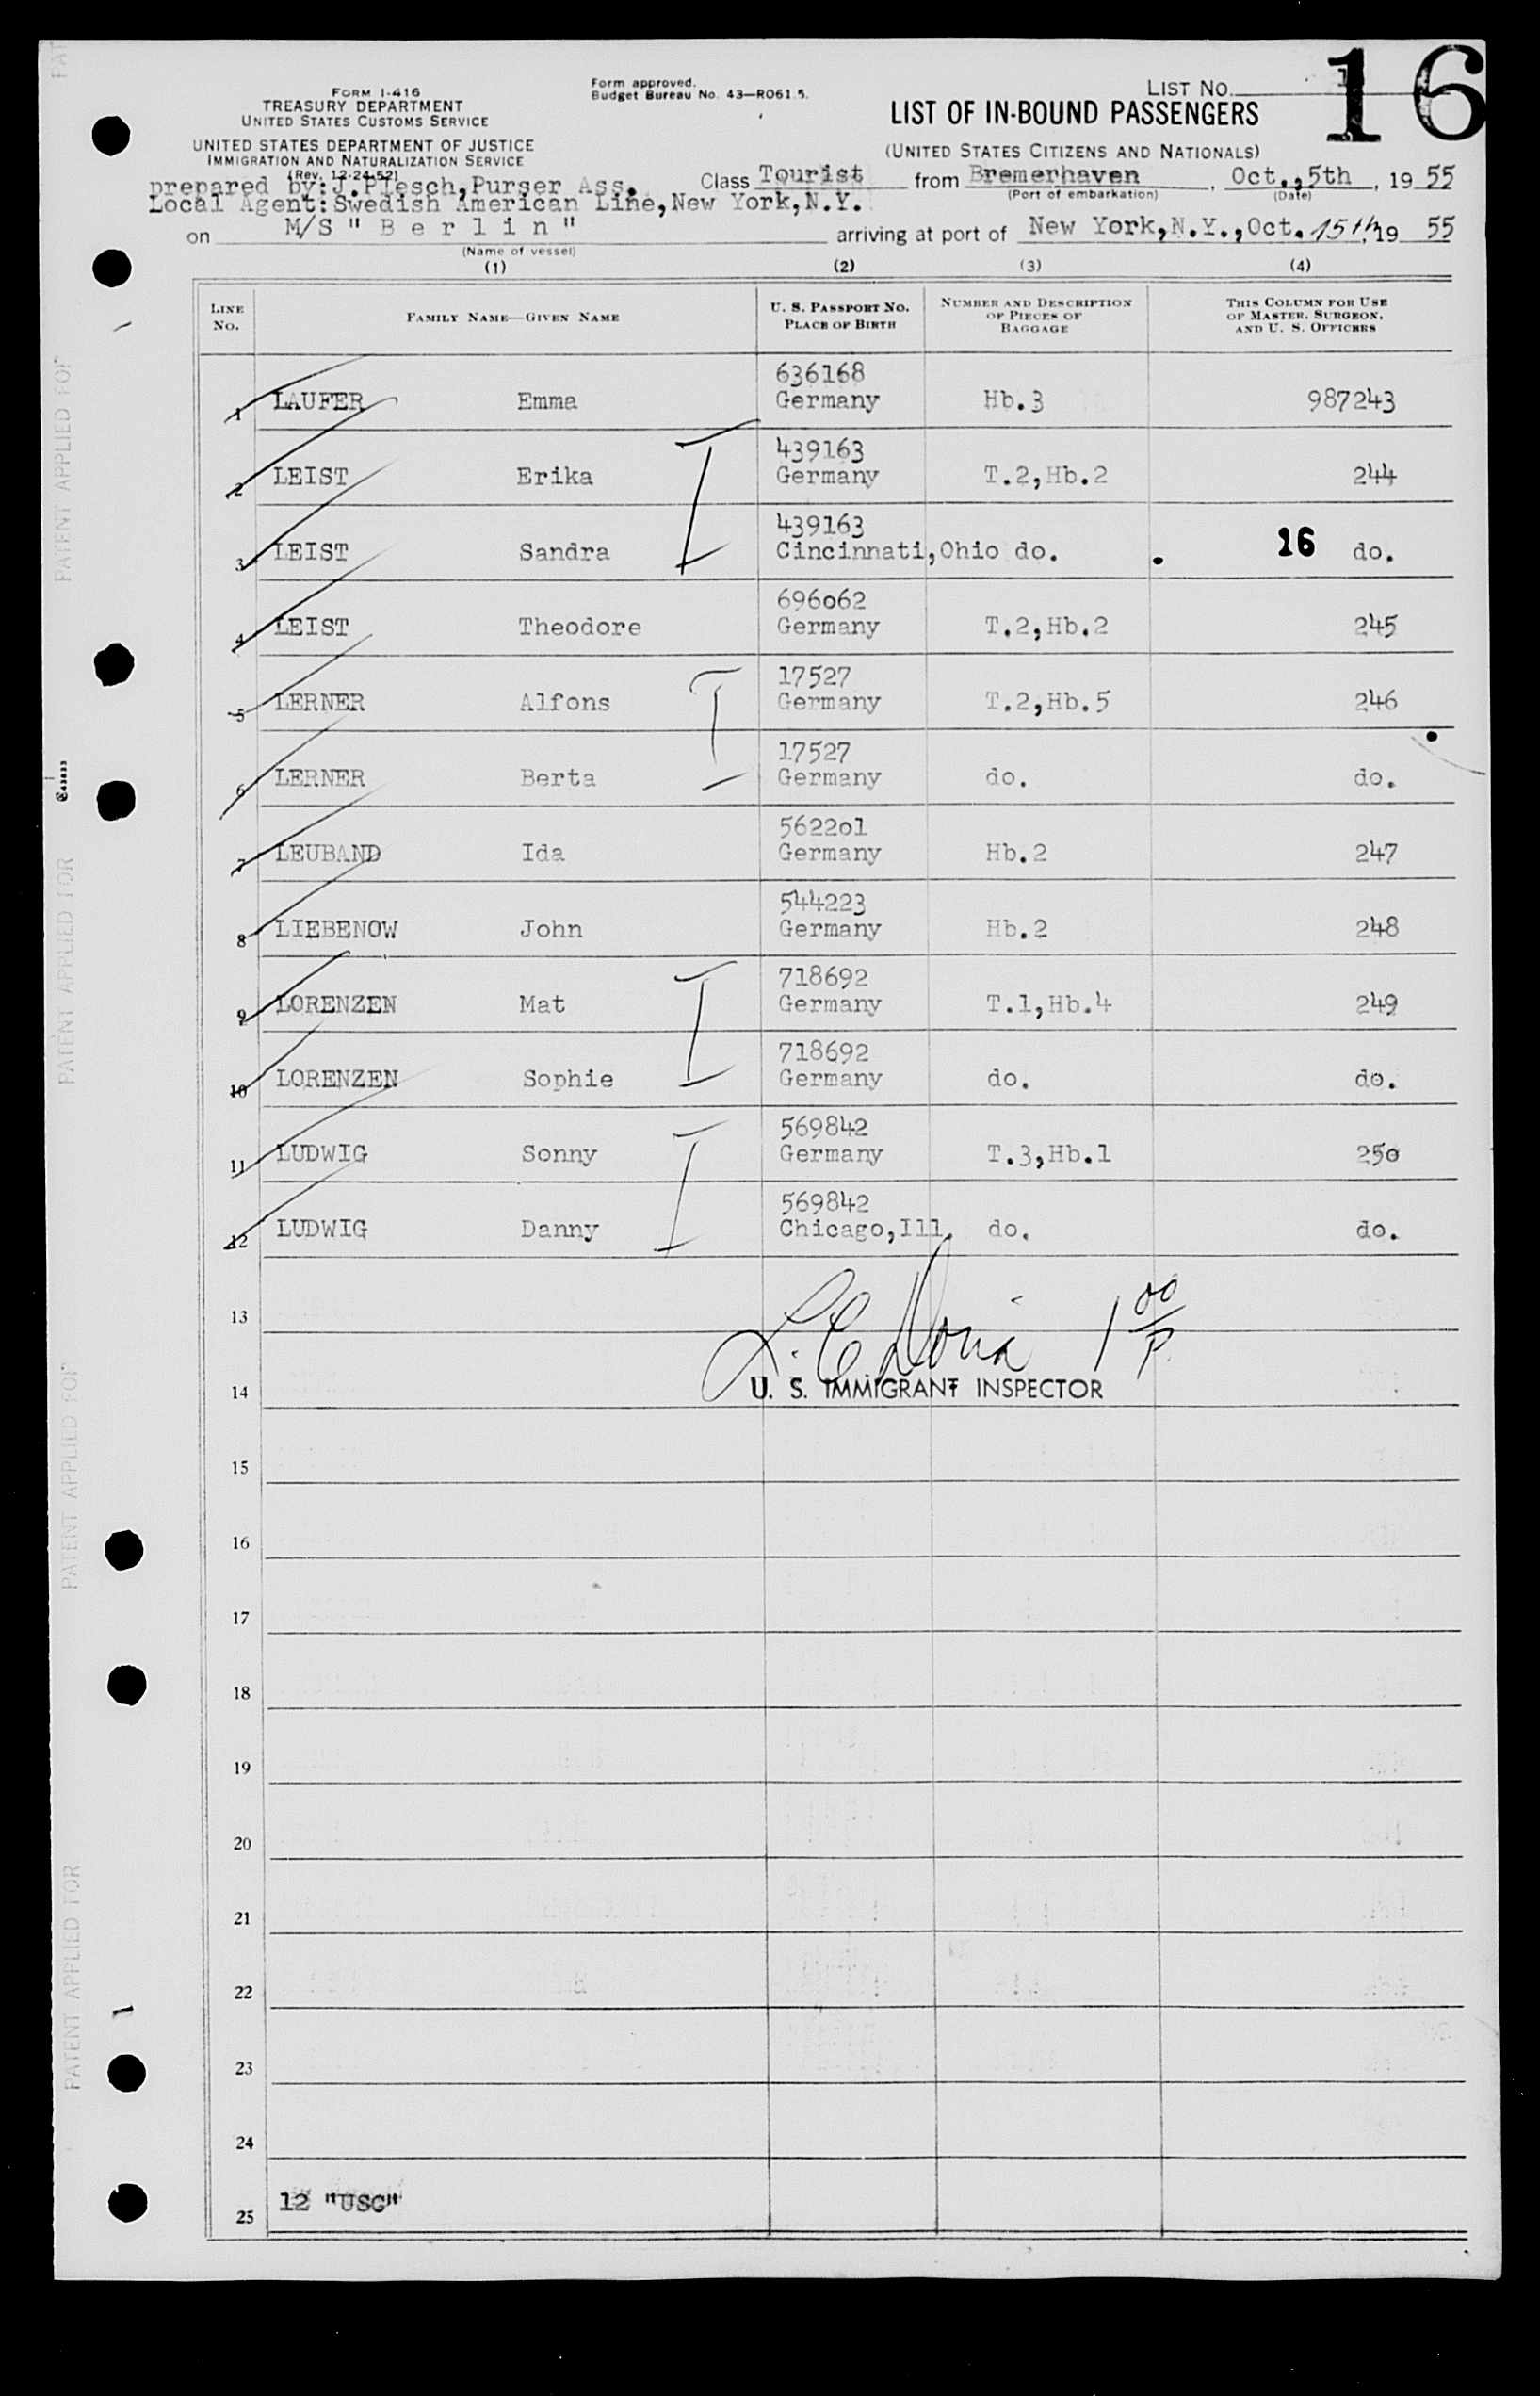 FORM I-416
TREASURY DEPARTMENT
UNITED STATES CUSTOMS SERVICE
UNITED STATES DEPARTMENT OF JUSTICE
IMMIGRATION AND NATURALIZATION SERVICE
(Rev. 12-24-52)
Form approved.
Budget Bureau No. 43—RO61.5.
LIST No.
16
LIST OF IN-BOUND PASSENGERS
(UNITED STATES CITIZENS AND NATIONALS)
prepared by: J.Plesch,Purser Ass. Class Tourist from Bremerhaven, Oct.,5th, 19 55
(Port of embarkation) (Date)
Local Agent:Swedish American Line,New York,N.Y.
on M/S " B e r l i n " arriving at port of New York,N.Y.,Oct. 15th, 19 55
(Name of vessel)
(1) (2) (3) (4)
LINE No. FAMILY NAME—GIVEN NAME U. S. PASSPORT NO. PLACE OF BIRTH NUMBER AND DESCRIPTION OF PIECES OF BAGGAGE THIS COLUMN FOR USE OF MASTER, SURGEON, AND U. S. OFFICERS
636168
1 LAUFER Emma Germany Hb.3 987243
439163
2 LEIST Erika Germany T.2,Hb.2 244
439163
3 LEIST Sandra Cincinnati,Ohio do. 16 do.
696062
4 LEIST Theodore Germany T.2,Hb.2 245
17527
5 LERNER Alfons Germany T.2,Hb.5 246
17527
6 LERNER Berta Germany do. do.
562201
7 LEUBAND Ida Germany Hb.2 247
544223
8 LIEBENOW John Germany Hb.2 248
718692
9 LORENZEN Mat Germany T.1,Hb.4 249
718692
10 LORENZEN Sophie Germany do. do.
569842
11 LUDWIG Sonny Germany T.3,Hb.1 250
569842
12 LUDWIG Danny Chicago,Ill. do. do.
13
1 00/P.
14 U. S. IMMIGRANT INSPECTOR
15
16
17
18
19
20
21
22
23
24
25 12 "USC"
PATENT APPLIED FOR
PATENT APPLIED FOR
PATENT APPLIED FOR
PATENT APPLIED FOR